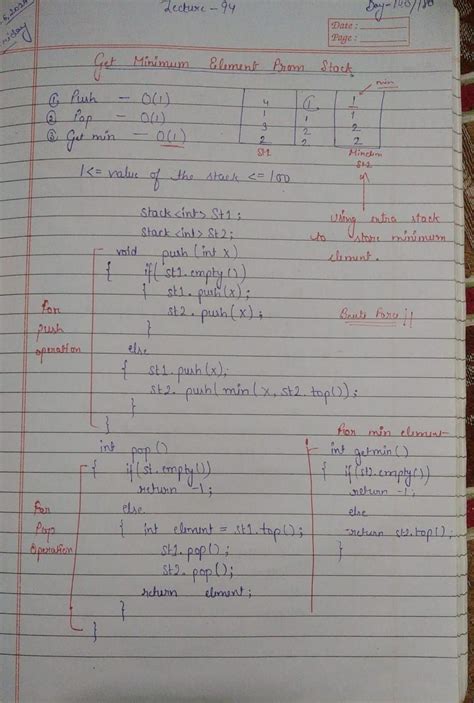 Lecture - 94
Day - 140/180
Date :
Page :
Get Minimum Element From Stack
① Push — O(1)
② Pop — O(1)
③ Get min — O(1)
min
4 1
1 1 1
3 2 2
2 2 2
St1
St2
1 <= value of the stack <= 100
using extra stack
to store minimum
element.
Brute Force !!
stack<int> St1;
stack<int> St2;
For
push
operation
void push (int x)
{ if( st1.empty())
{ st1.push(x);
st2.push(x);
}
else
{ st1.push(x);
st2.push(min(x, st2.top());
}
}
For
Pop
Operation
int pop()
{ if(st.empty())
return -1;
else
{ int element = st1.top();
st1.pop();
st2.pop();
return element;
}
}
For min element
int getmin()
{ if(st2.empty())
return -1;
else
return st2.top();
}